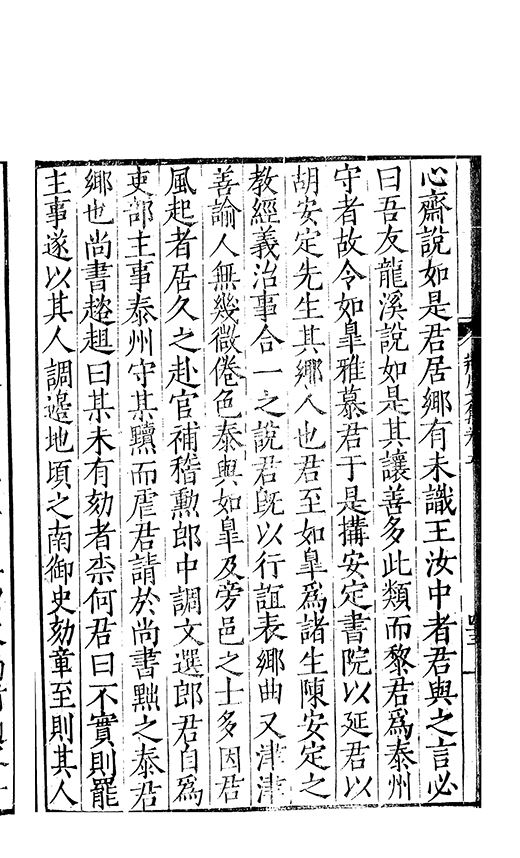 心齋說如是君居鄉有未識王汝中者君與之言必
曰吾友龍溪說如是其讓善多此類而黎君爲泰州
守者故令如臯雅慕君于是搆安定書院以延君以
胡安定先生其鄉人也君至如臯爲諸生陳安定之
教經義治事合一之說君旣以行誼表鄉曲又津津
善諭人無幾微倦色泰與如臯及旁邑之士多因君
風起者居久之赴官補稽勳郎中調文選郎君自爲
吏部主事泰州守某黷而虐君請於尚書黜之泰君
鄉也尚書趦趄曰某未有劾者柰何君曰不實則罷
主事遂以其人調邊地頃之南御史劾章至則其人